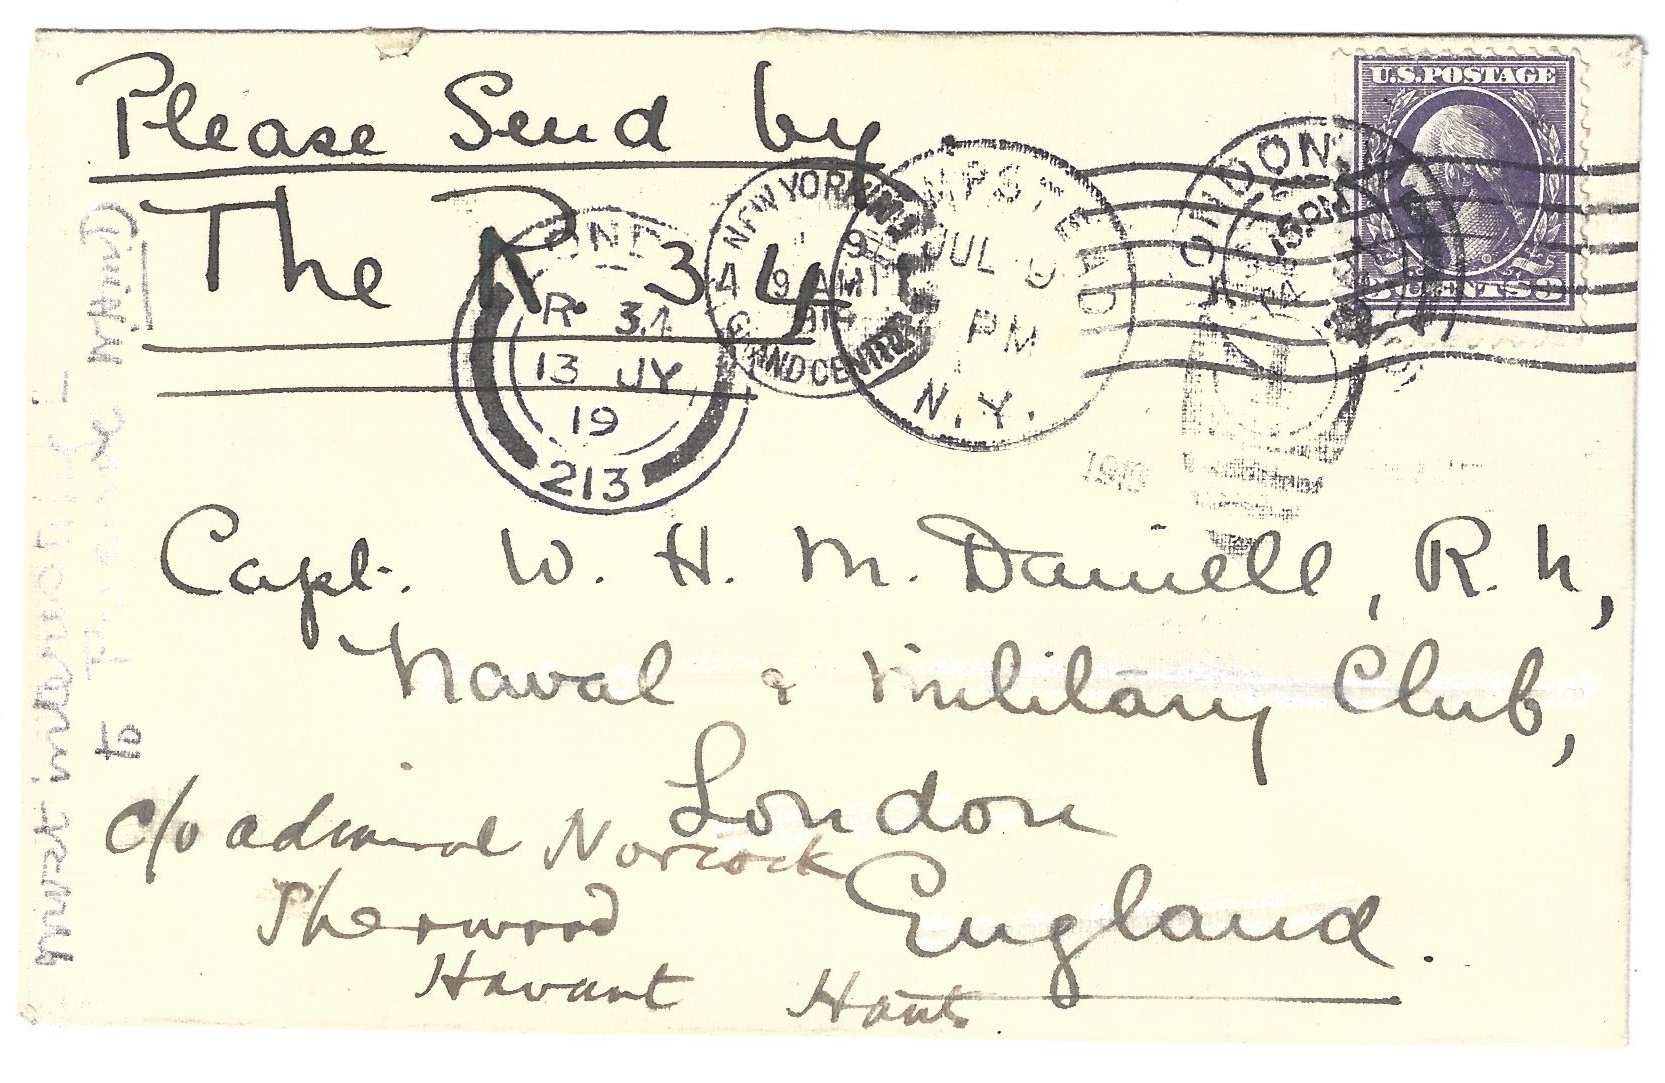 Please Send by
The R 34
U.S. POSTAGE
NEW YORK, N.Y.
9 AM
GRAND CENTRAL
HEMPSTEAD
JUL
PM
N.Y.
LONDON
R 34
13 JY
19
213
LONDON
.15 PM
1919
Capt. W. H. M. Daniell, R.N,
Naval & Military Club,
London
England.
c/o admiral Norcock
Sherwood
Havant Hants
most interesting
to